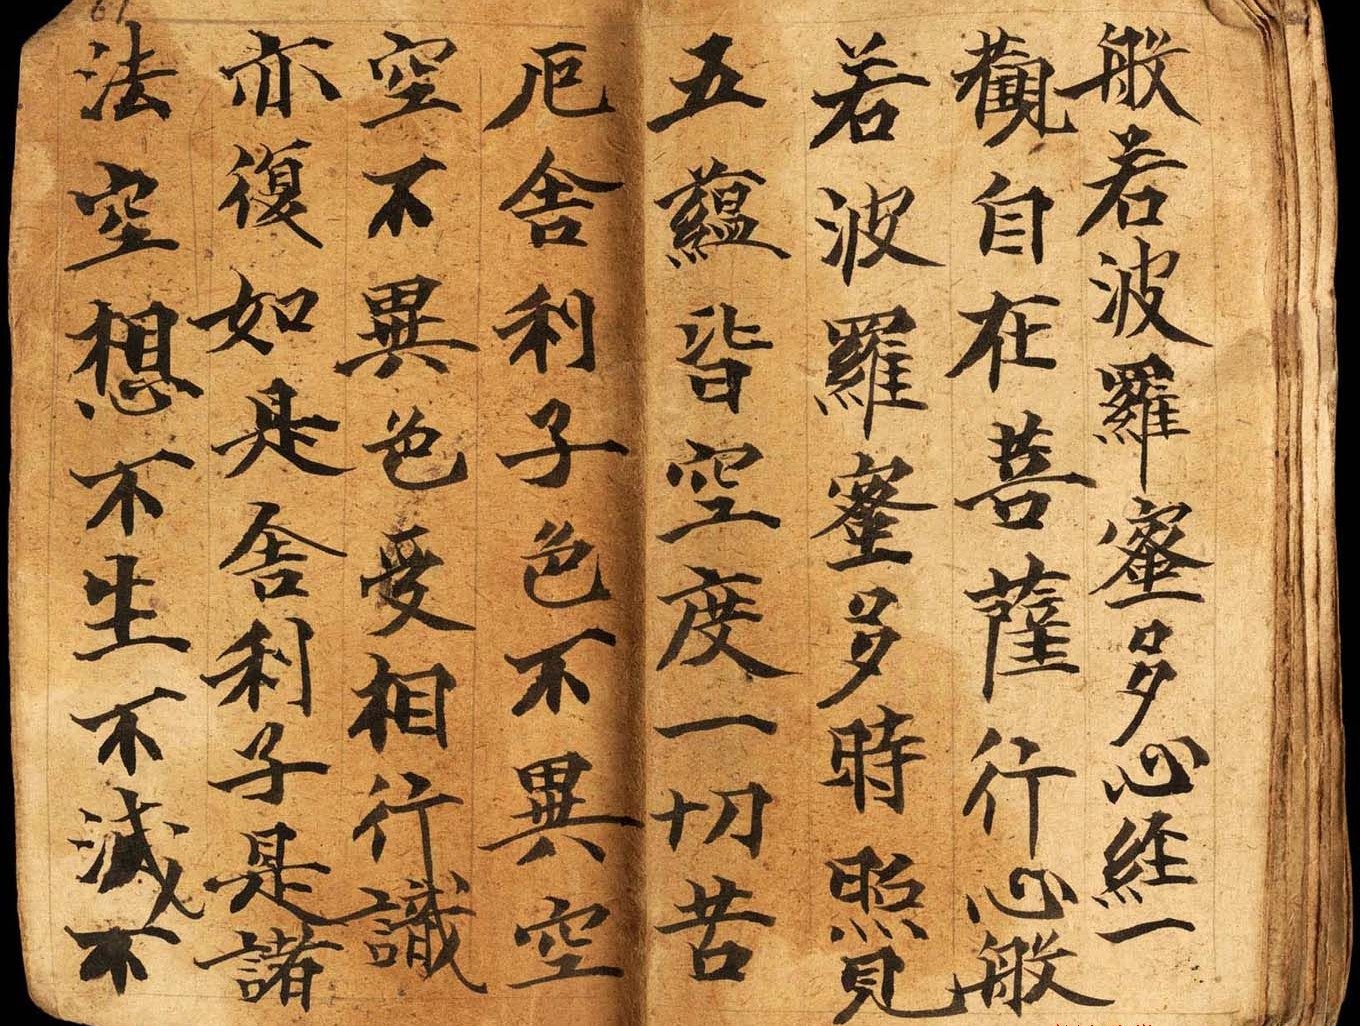 般若波羅蜜多心経一
觀自在菩薩行心般
若波羅蜜多時照見
五蘊皆空度一切苦
厄舍利子色不異空
空不異色受相行識
亦復如是舍利子是諸
法空想不生不滅不
61